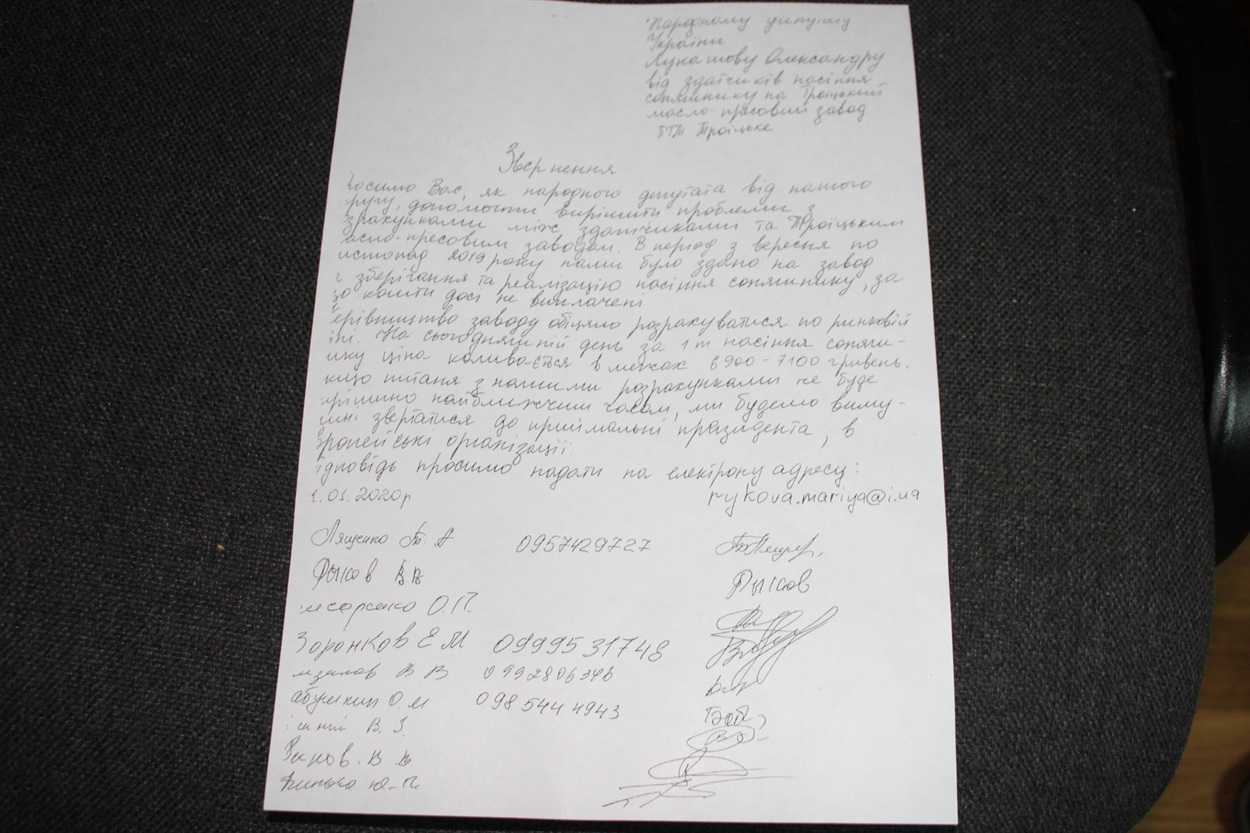 Народному депутату
України
Лукашову Олександру
від здатчиків насіння
соняшнику на Троїцький
масло-пресовий завод
ПГТ Троїцьке
Звернення
росимо Вас, як народного депутата від нашого
ругу, допомогти вирішити проблеми з
зрахунками між здатчиками та Троїцьким
асло-пресовим заводом. В період з вересня по
истопад 2019 року нами було здано на завод
зберігання та реалізацію насіння соняшнику, за
що кошти досі не виплачені
ерівництво заводу обіцяло розрахуватися по ринковій
іні. На сьогоднящній день за 1т насіння соняш-
ику ціна коливається в межах 6900-7100 гривень.
кщо питання з нашими розрахунками не буде
рішино найближчим часом, ми будемо виму-
ені звертатися до приймальні президента, в
ропейські організації.
ідповідь просимо надати на електрону адресу:
1.01.2020р rykova.mariya@i.ua
Лященко Т. А 0957429727
Рыков ВВ Рыков
О.П.
Заронков Е М 0999531748
В В
О.М 098 544 4943
В. І.